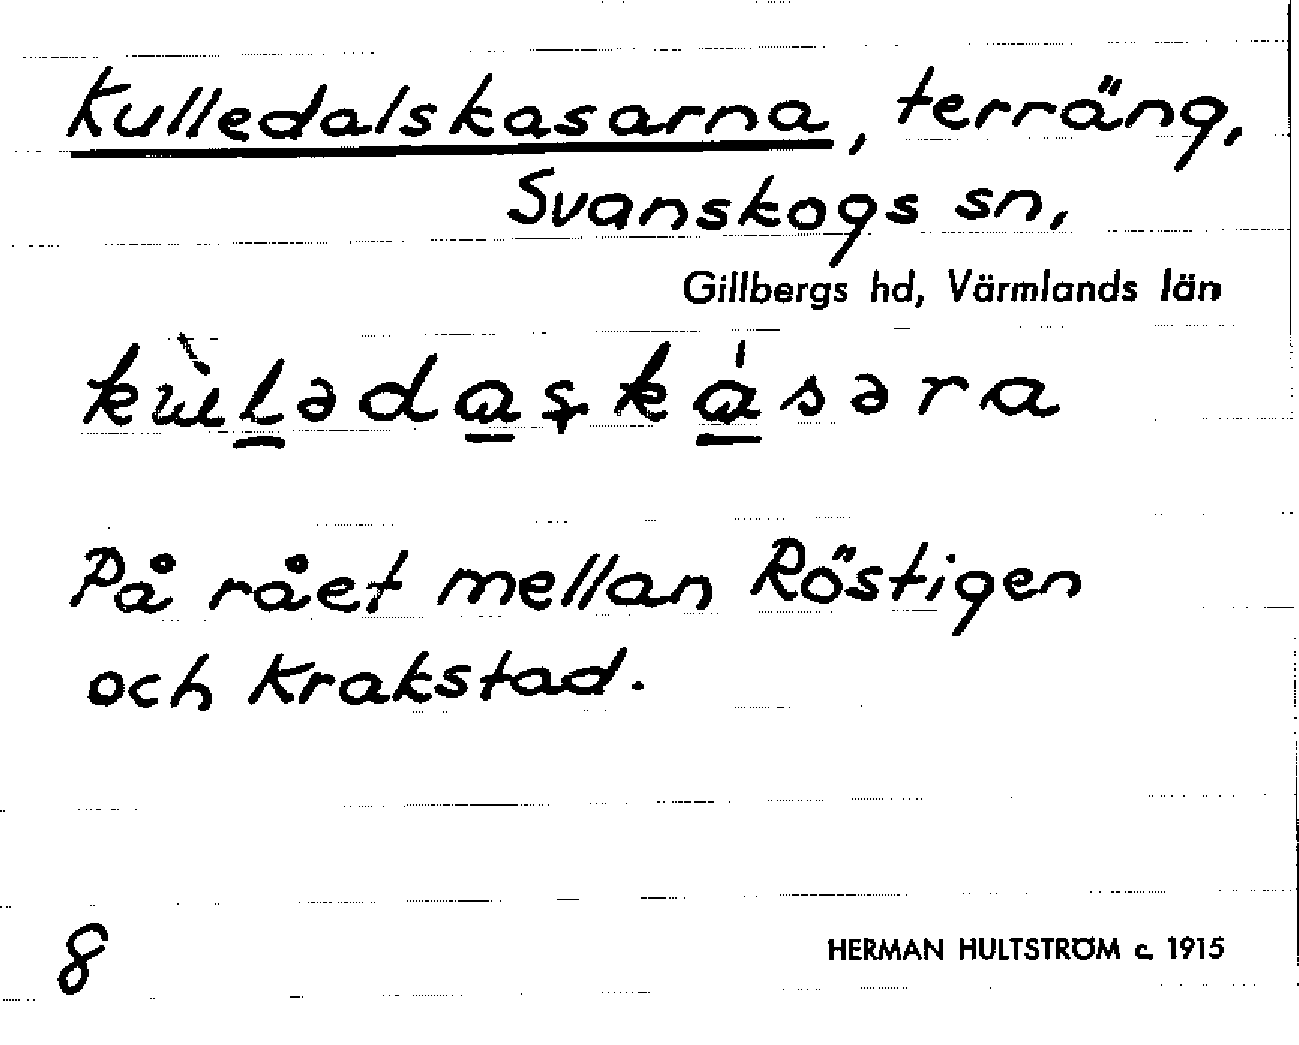 Kulledalskasarna, terräng,
Svanskogs sn,
Gillbergs hd, Värmlands län
På rået mellan Röstigen
och Krakstad.
8
HERMAN HULTSTRÖM c. 1915